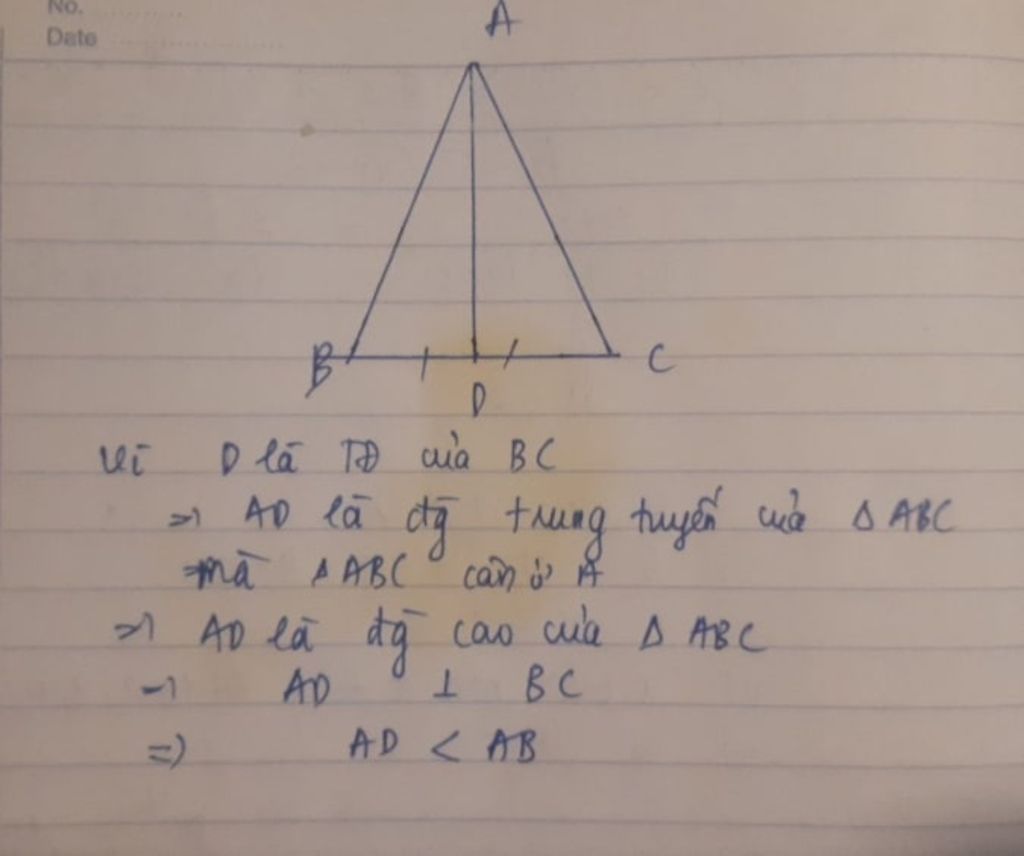 No.
Date
A
B
C
D
Vì D là TĐ của BC
=> AD là đg trung tuyến của Δ ABC
mà Δ ABC cân ở A
=> AD là đg cao của Δ ABC
=> AD ⊥ BC
=> AD < AB